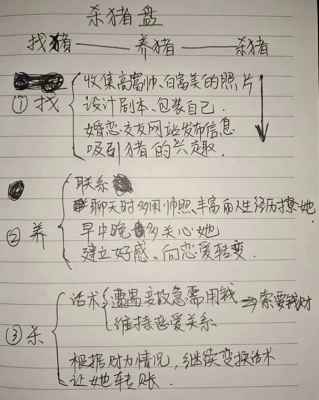 杀猪盘
找猪——养猪——杀猪
① 找
收集高富帅、白富美的照片
设计剧本、包装自己.
婚恋交友网站发布信息
吸引猪的兴趣.
② 养
联系
聊天时多用帅照、丰富而人生经历撩她
早中晚多关心她
建立好感、向恋爱转变.
③ 杀
话术
遭遇变故急需用钱 ⇒ 索要钱财
维持恋爱关系
根据财力情况,继续变换话术
让她转账.